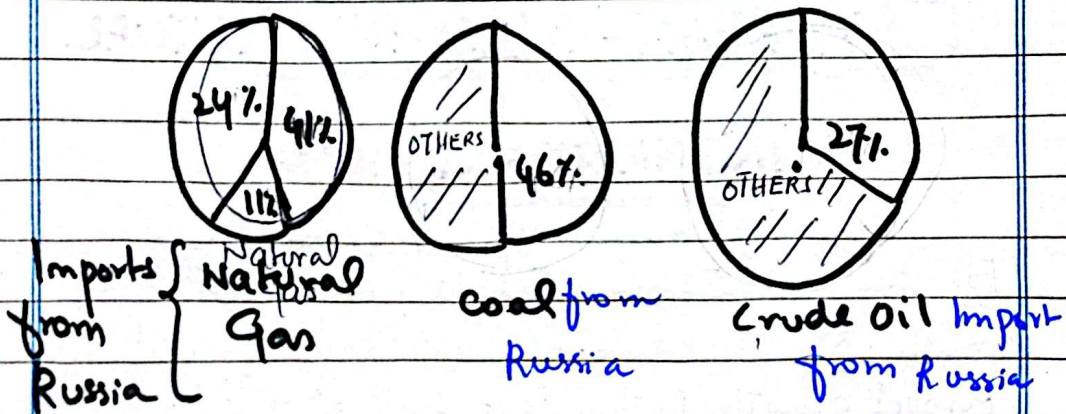 24%. 41% 11%
OTHERS 46%.
27%. OTHERS
Imports from Russia
Natural Gas
Natural Gas
Coal from Russia
Crude Oil Import from Russia